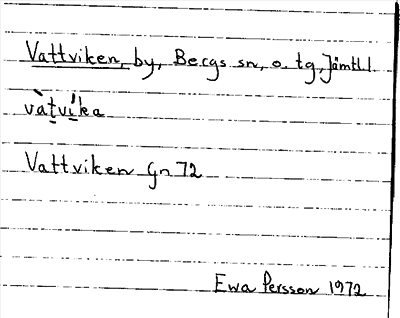 Vattviken, by, Bergs sn, o. tg, Jämtl. l.
vàtvíka
Vattviken Gn 72
Ewa Persson 1972